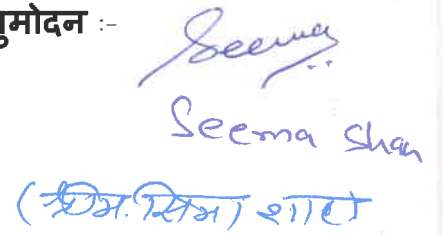 नुमोदन :-
Seema
Seema Shah
(श्रीम. सिमा शाह)